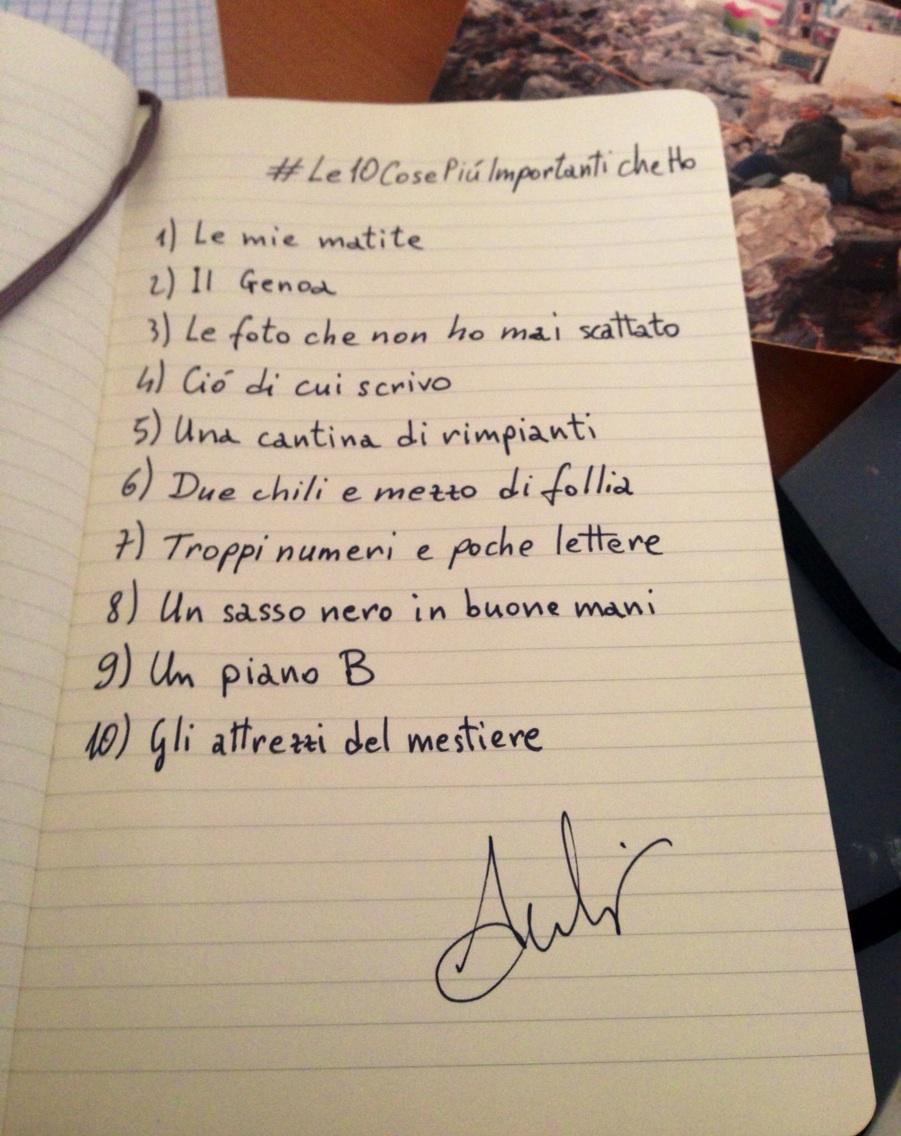 #Le10CosePiúImportanticheHo
1) Le mie matite
2) Il Genoa
3) Le foto che non ho mai scattato
4) Ció di cui scrivo
5) Una cantina di rimpianti
6) Due chili e mezzo di follia
7) Troppi numeri e poche lettere
8) Un sasso nero in buone mani
9) Un piano B
10) Gli attrezzi del mestiere